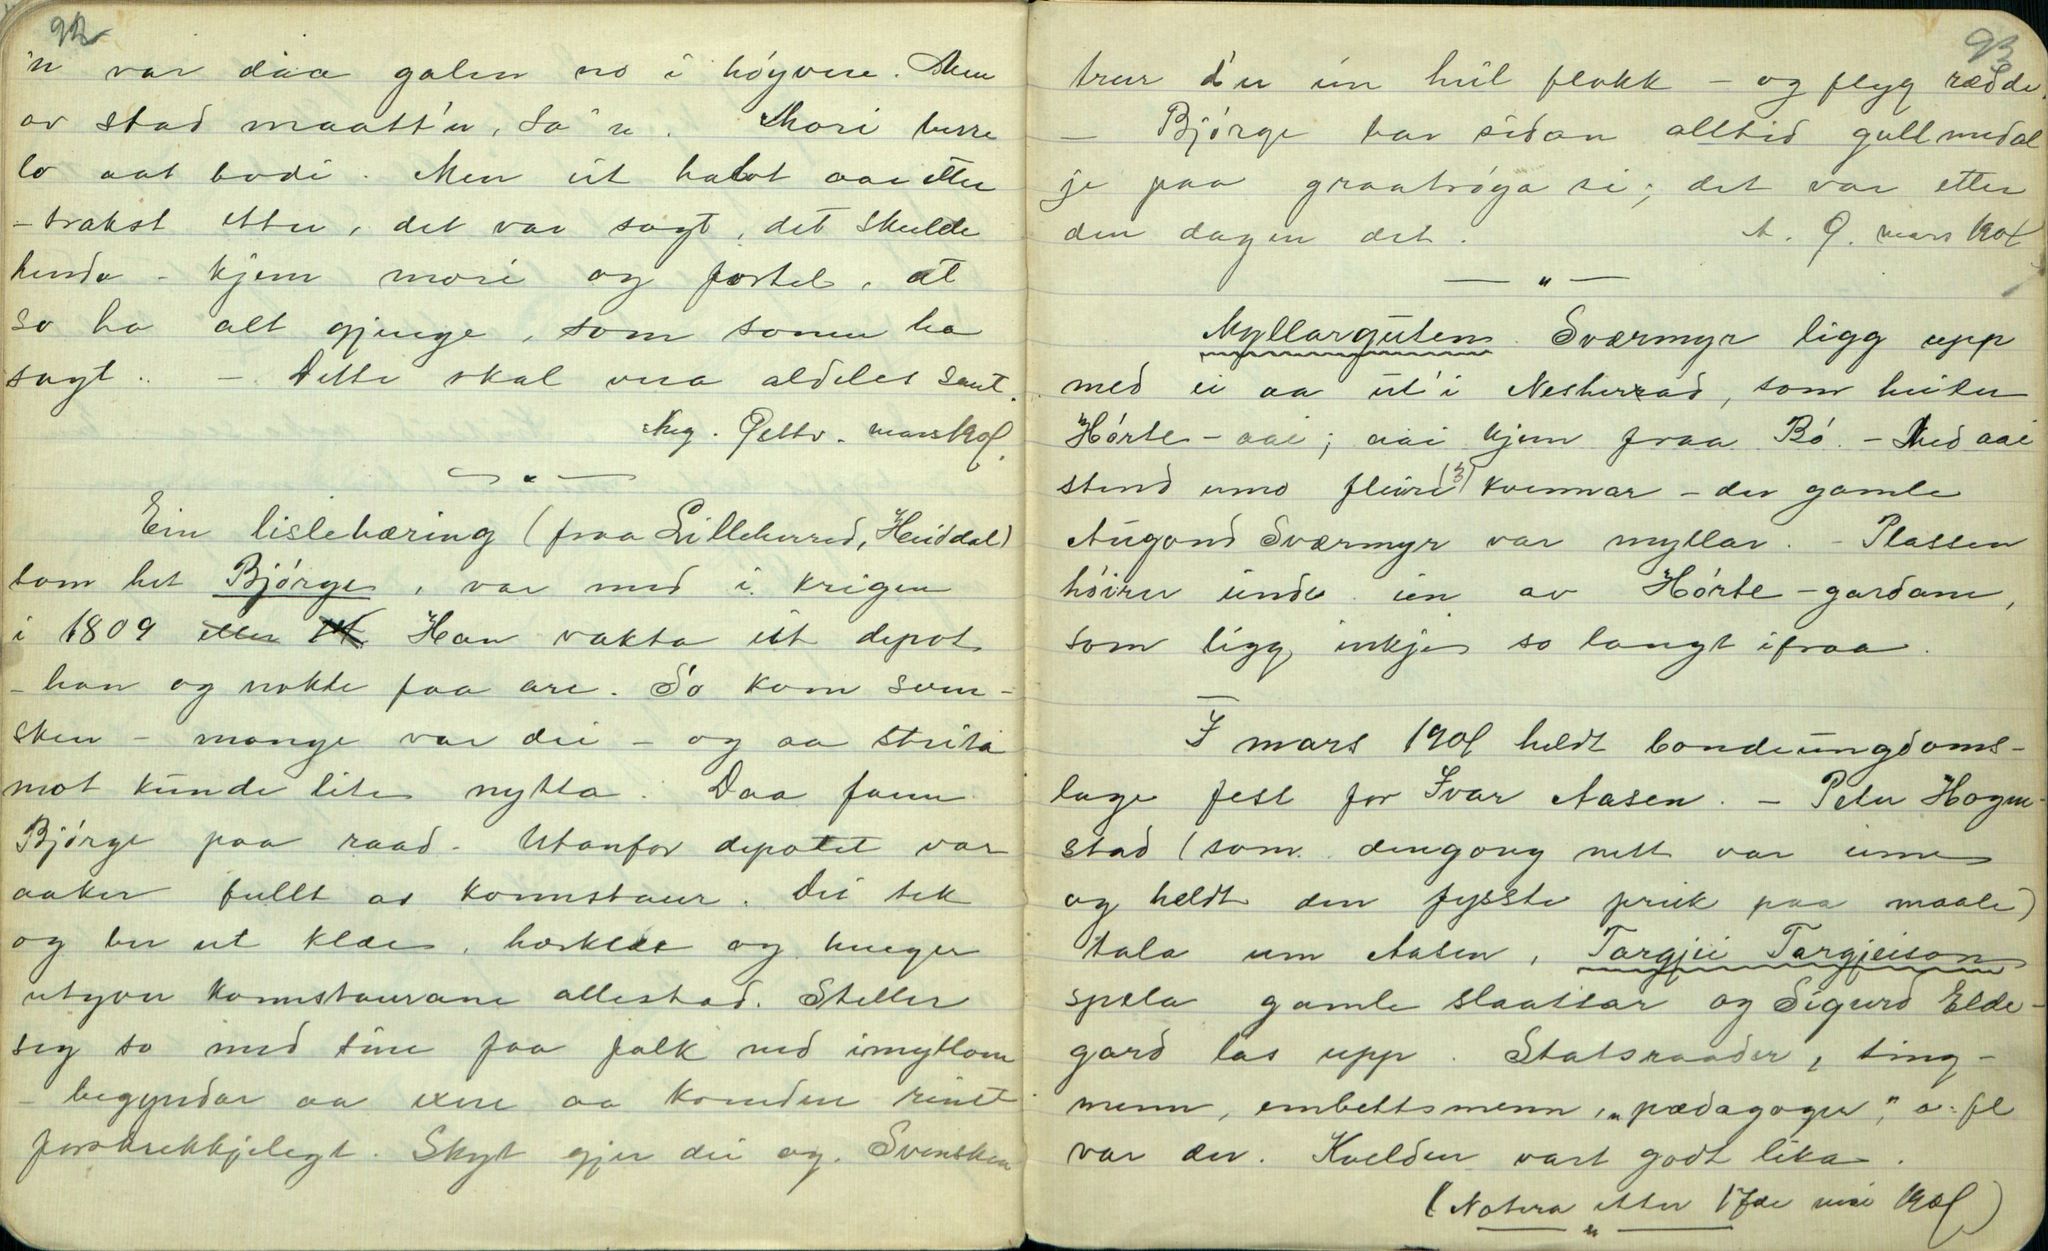 92
'n var daa galen no i høgvere. Men
av stad maatt'n, sa 'n. Mori berre
lo aat bodi. Men eit halvt aar etter
- trakst etter, det var sagt, det skulde
henda - kjem mori og fortel, at
so ha alt gjenge, som sonen ha
sagt. - Dette skal vera aldeles sant.
Aug. Gettv. mars 1901.
— " —
Ein lislehæring (fraa Lilleherred, Heiddal)
som het Bjørge, var med i krigen
i 1809 eller 14. Han vakta eit depot
- han og nokre faa are. So kom sven-
sken - mange var dei - og aa strita
mot kunde lite nytta. Daa fann
Bjørge paa raad. Utanfor depotet var
aaker fullt av kornstaur. Dei tek
og ber ut klæe, hærklæe og hueger
utyver kornstaurane allestad. Steller
seg so med sine faa folk ned imyllom
- begyndar aa exere aa komdere reint
forskrekkjelegt. Skyt gjer dei og. Svensken
93
trur d'er ein heil flokk - og flyg rædde.
- Bjørge bar sidan alltid gullmedal
je paa graatrøga si; det var etter
den dagen det. A. G. mars 1901
— " —
Myllarguten. Sværmyr ligg upp
med ei aa ut'i Nesherrad, som heiter
Hørte-aai; aai kjem fraa Bø. - Med aai
stend umo fleire (3) kvennar - der gamle
Augond Sværmyr var myllar. - Plassen
høirer under ein av Hørte-gardane,
som ligg inkje so langt ifraa.
—
I mars 1901 heldt bondeungdoms-
lage fest for Ivar Aasen. - Peter Hogne-
stad (som dengong nett var inne
og heldt den fyrste preik paa maale)
tala um Aasen, Targjei Targjeison
spela gamle slaattar og Sigurd Elde-
gard las upp. Statsraader, ting-
menn, embettsmenn, „pædagoger," o. fl
var der. Kvelden vart godt lika.
(Notera etter 17de mai 1901)
"